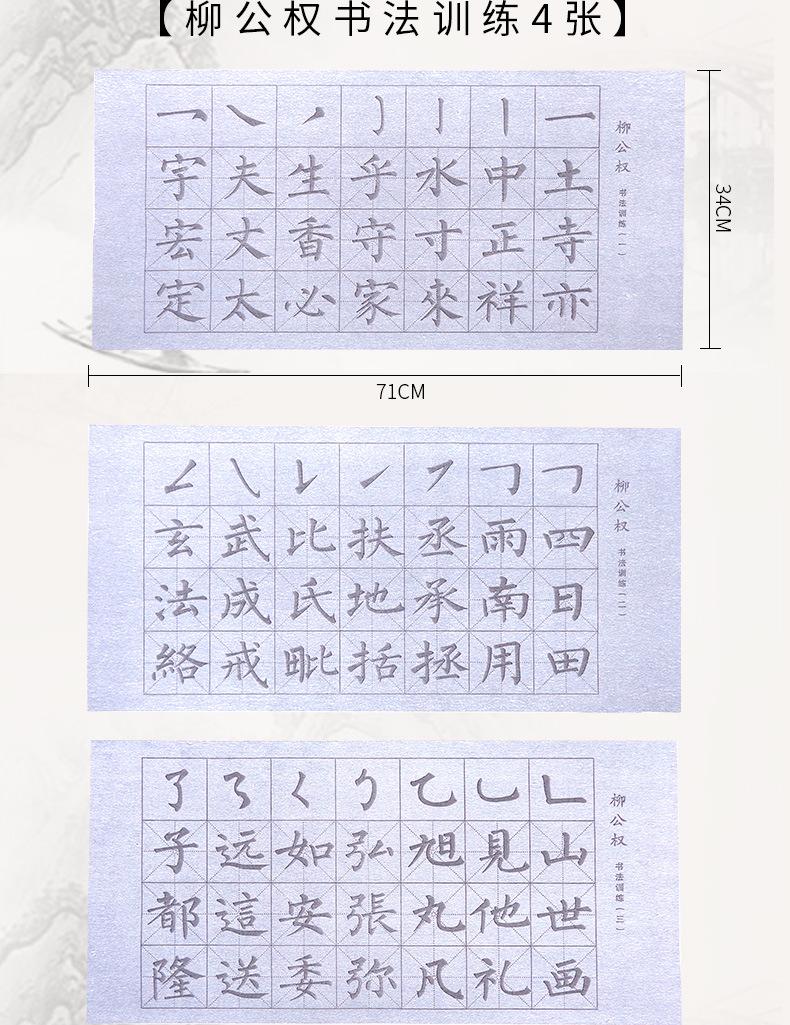 【柳公权书法训练4张】
柳公权 书法训练(一)
宇夫生乎水中土
宏丈香守寸正寺
定太必家來祥亦
34CM
71CM
柳公权 书法训练(二)
玄武比扶丞雨四
法成氏地承南日
絡戒毗括拯用田
柳公权 书法训练(三)
子远如弘旭見山
都這安張丸他世
隆送委弥凡礼画